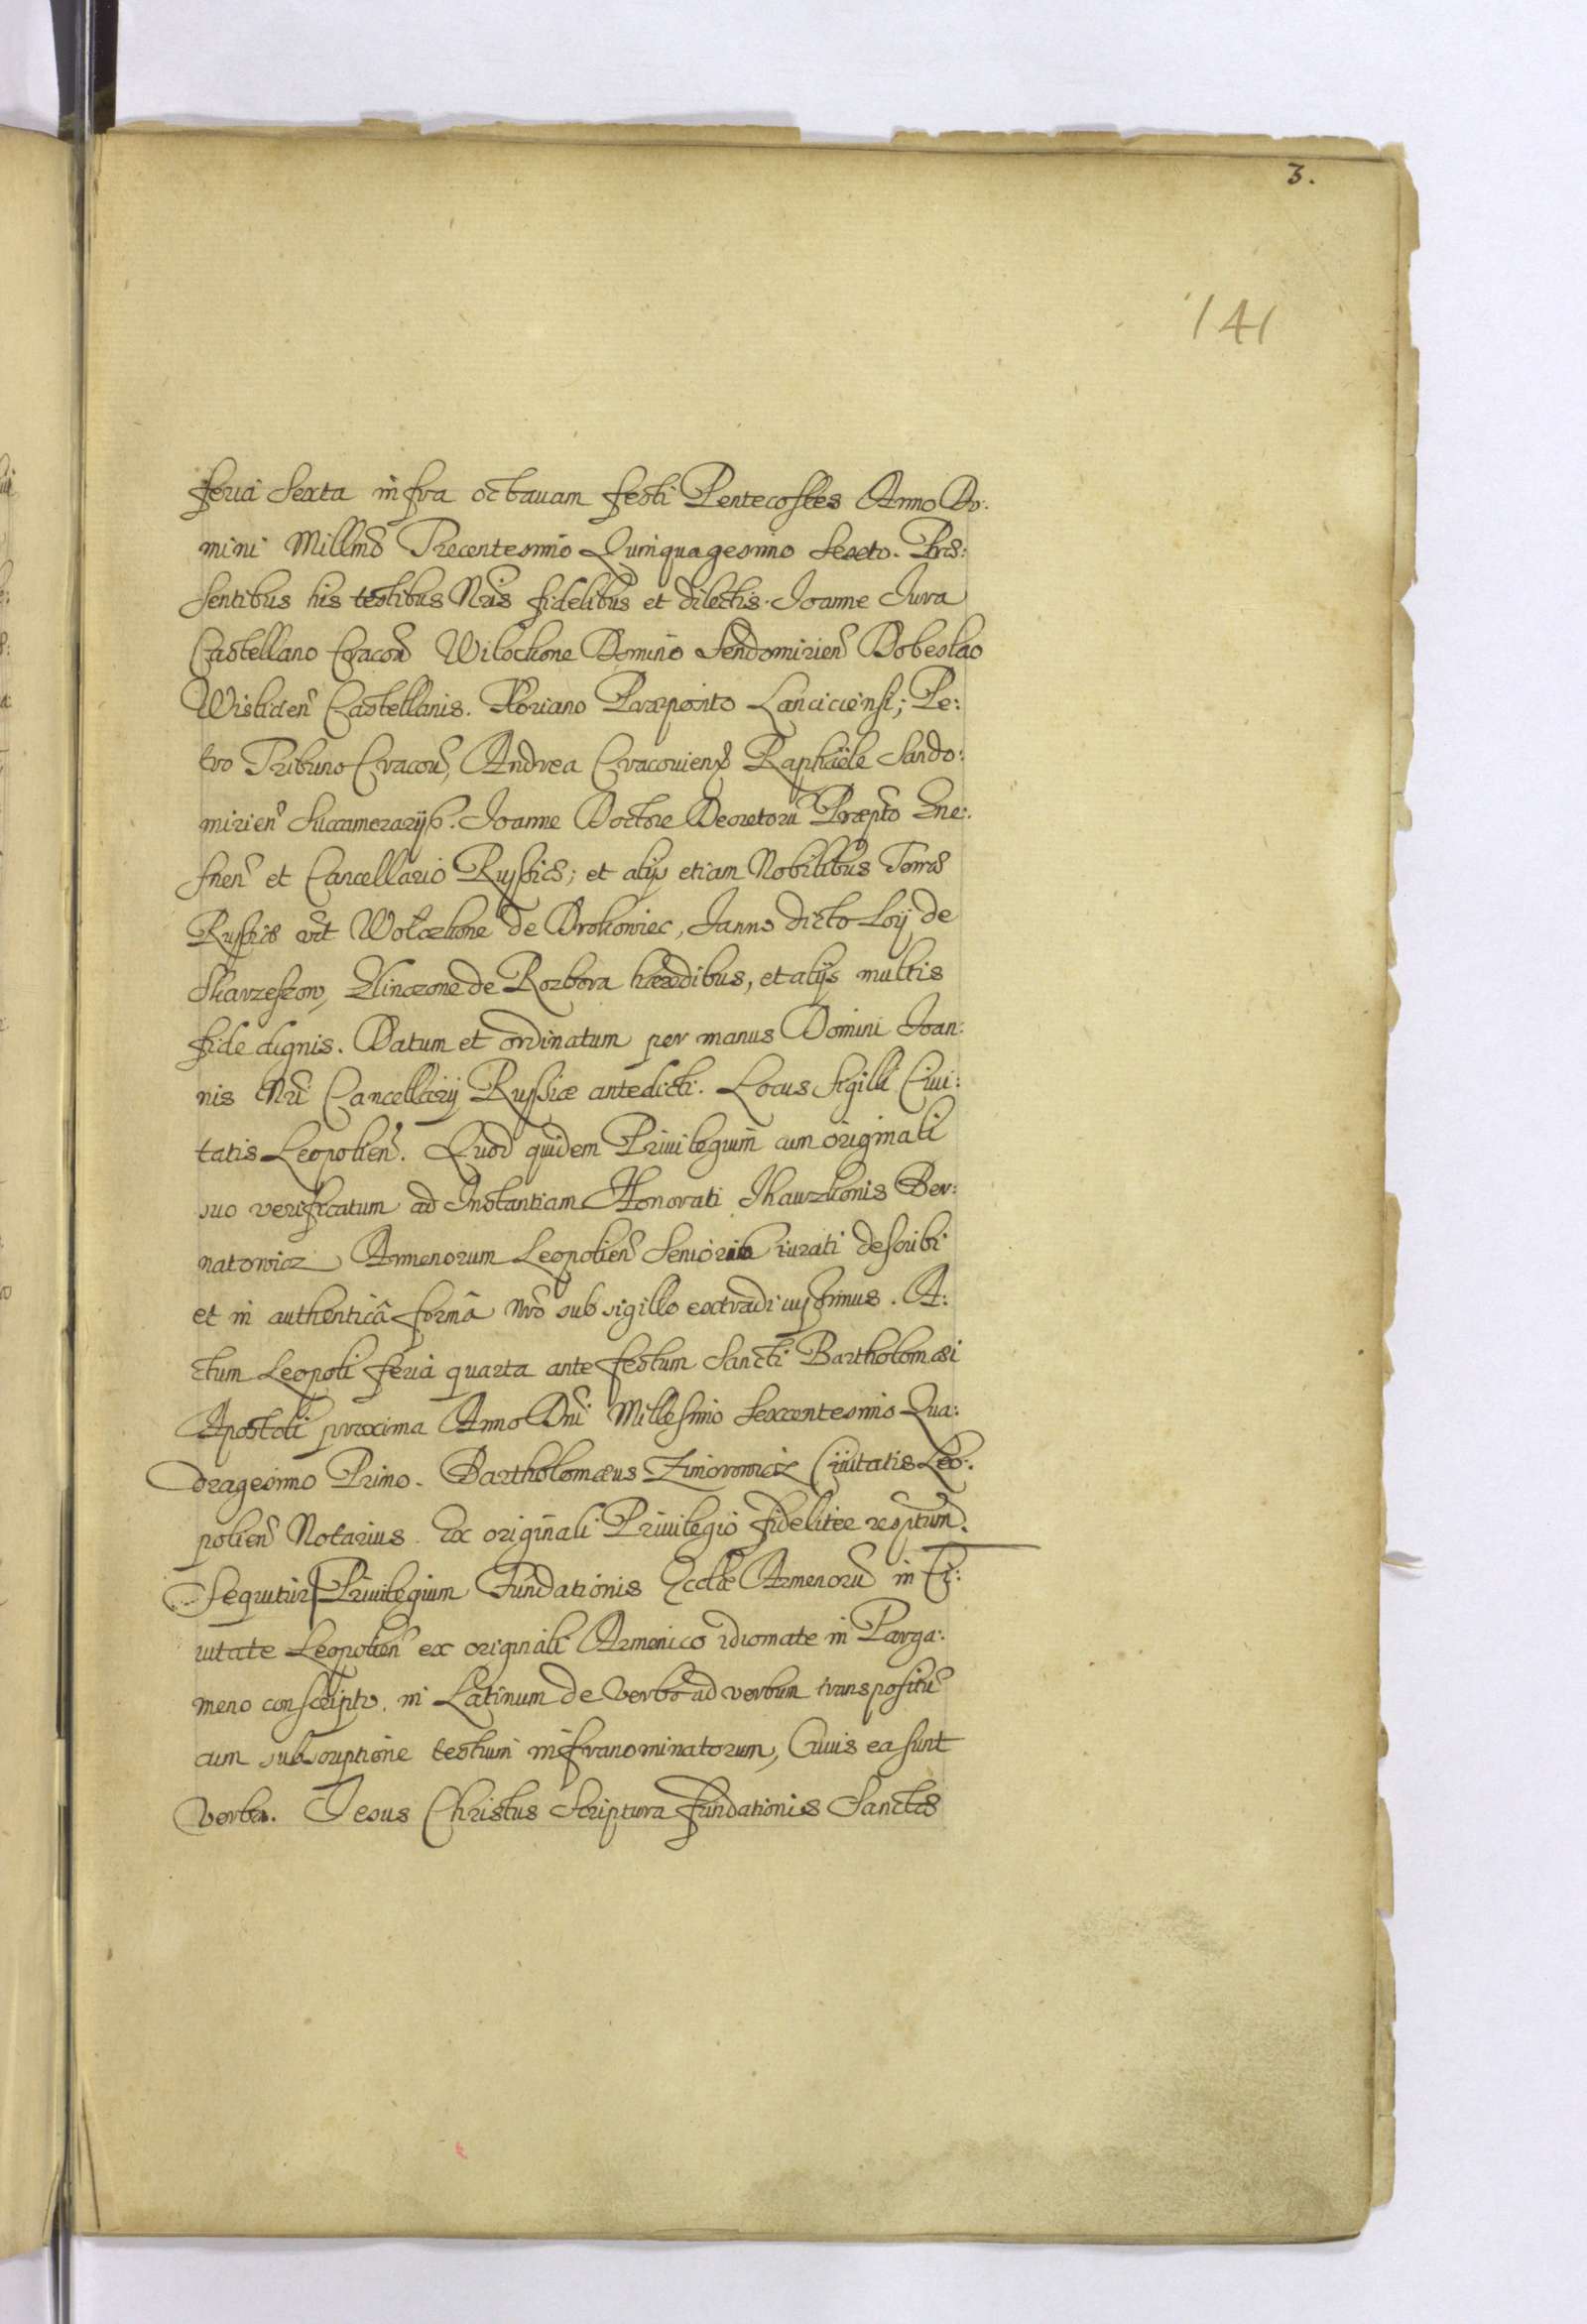 3.
141
feria Sexta infra octauam festi Pentecostes Anno Do:
mini Millmo Trecentesimo Quinquagesimo Sexto. Præ:
sentibus his testibus Nris fidelibus et dilectis. Joanne Jura
Castellano Cracou Wilockone Domino Sendomirien Dobeslao
Wislicien Castellanis. Floriano Præposito Lanciciensi; Pe:
tro Tribuno Cracou, Andrea Cracouiens Raphaële Sando:
mirien Succamerarijs. Joanne Doctore Decretorū Præpto Gne:
snen et Cancellario Russiæ; et alijs etiam Nobilibus Terræ
Russiæ vt Wołczkone de Drohowiec, Janno dicto Loy de
Skarzeszow, Klinczone de Rozbora hæredibus, et alijs multis
fide dignis. Datum et ordinatum per manus Domini Joan:
nis Nri Cancellarij Russiæ antedicti. Locus Sigilli Ciui:
tatis Leopolien. Quod quidem Priuilegium cum originali
suo verificatum ad Instantiam Honorati Jhawzkonis Ber:
natowicz Armenorum Leopolien Senioris iurati describi
et in authenticâ formâ nro sub sigillo extradi iussimus. A:
ctum Leopoli feria quarta ante festum Sancti Bartholomæi
Apostoli proxima Anno Dni Millesimo Sexcentesimo Qua:
dragesimo Primo. Bartholomæus Zimorowicz Ciuitatis Leo:
polien Notarius. Ex originali Priuilegio fideliter rescptum.
Sequitur Priuilegium Fundationis Ecclæ Armenorū in Ci:
uitate Leopolien ex originali Armenico idiomate in Parga:
meno conscripto. in Latinum de verbo ad verbum transpositū
cum subscriptione testium infranominatorum, Cuius ea sunt
verba. Jesus Christus Scriptura fundationis Sanctæ